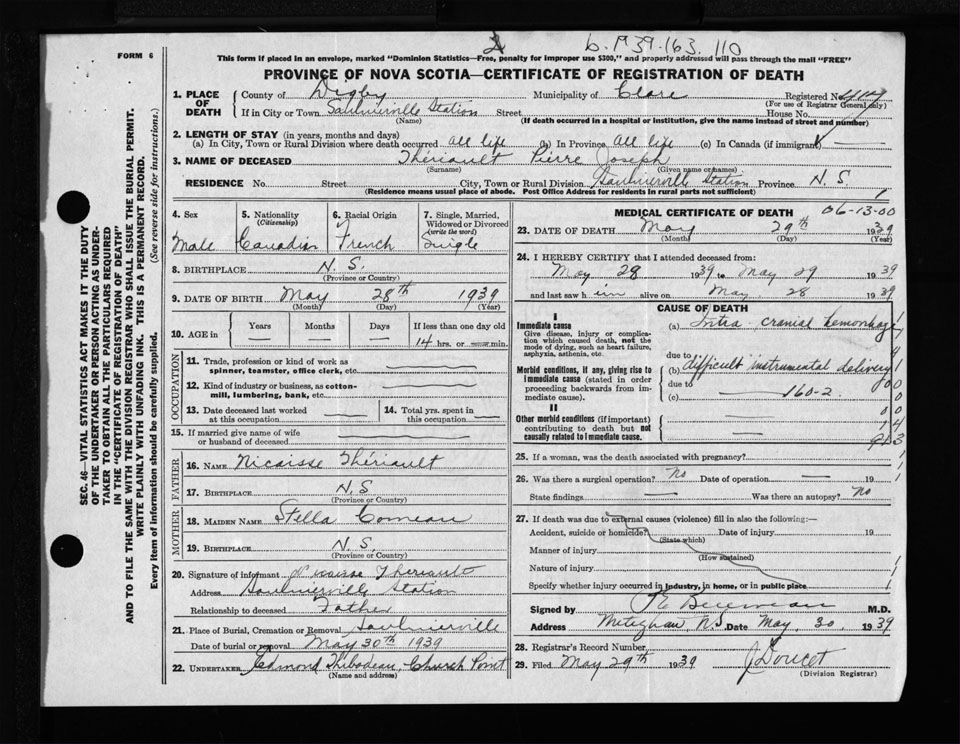 2 b. 1939.163. 110
FORM 6
This form if placed in an envelope, marked "Dominion Statistics—Free, penalty for improper use $300," and properly addressed will pass through the mail "FREE"
PROVINCE OF NOVA SCOTIA—CERTIFICATE OF REGISTRATION OF DEATH
SEC. 46—VITAL STATISTICS ACT MAKES IT THE DUTY
OF THE UNDERTAKER OR PERSON ACTING AS UNDER-
TAKER TO OBTAIN ALL THE PARTICULARS REQUIRED
IN THE "CERTIFICATE OF REGISTRATION OF DEATH"
AND TO FILE THE SAME WITH THE DIVISION REGISTRAR WHO SHALL ISSUE THE BURIAL PERMIT.
WRITE PLAINLY WITH UNFADING INK. THIS IS A PERMANENT RECORD.
Every item of information should be carefully supplied. (See reverse side for instructions.)
1. PLACE OF DEATH County of Digby Municipality of Clare Registered No.
(For use of Registrar General only)
If in City or Town Saulnierville Station Street House No.
(Name) (If death occurred in a hospital or institution, give the name instead of street and number)
2. LENGTH OF STAY (in years, months and days)
(a) In City, Town or Rural Division where death occurred all life (b) In Province all life (c) In Canada (if immigrant)
3. NAME OF DECEASED Thériault Pierre Joseph
(Surname) (Given name or names)
RESIDENCE No. Street City, Town or Rural Division Saulnierville Station Province N. S.
(Residence means usual place of abode. Post Office Address for residents in rural parts not sufficient) 1
4. Sex Male
5. Nationality (Citizenship) Canadian
6. Racial Origin French
7. Single, Married, Widowed or Divorced (write the word) Single
8. BIRTHPLACE N. S.
(Province or Country)
9. DATE OF BIRTH May 28th 1939
(Month) (Day) (Year)
10. AGE in Years — Months — Days — If less than one day old
14 hrs. or — min.
OCCUPATION
11. Trade, profession or kind of work as
spinner, teamster, office clerk, etc.
12. Kind of industry or business, as cotton-
mill, lumbering, bank, etc.
13. Date deceased last worked at this occupation —
14. Total yrs. spent in this occupation —
15. If married give name of wife
or husband of deceased
FATHER
16. NAME Nicaisse Thériault
17. BIRTHPLACE N. S
(Province or Country)
MOTHER
18. MAIDEN NAME Stella Comeau
19. BIRTHPLACE N. S.
(Province or Country)
20. Signature of informant Nicaisse Theriault
Address Saulnierville Station
Relationship to deceased Father
21. Place of Burial, Cremation or Removal Saulnierville
Date of burial or removal May 30th 1939
22. UNDERTAKER Edmond Thibodeau, Church Point
(Name and address)
MEDICAL CERTIFICATE OF DEATH 06-13-00
23. DATE OF DEATH May 29th 1939
(Month) (Day) (Year)
24. I HEREBY CERTIFY that I attended deceased from:
May 28 1939 to May 29 1939
and last saw him alive on May 28 1939
CAUSE OF DEATH
I
Immediate cause
Give disease, injury or complica-
tion which caused death, not the
mode of dying, such as heart failure,
asphyxia, asthenia, etc.
(a) Intra cranial hemorrhage
due to
Morbid conditions, if any, giving rise to
Immediate cause (stated in order
proceeding backwards from im-
mediate cause).
(b) difficult instrumental delivery
due to
(c) 160-2
II
Other morbid conditions (if important)
contributing to death but not
causally related to Immediate cause.
25. If a woman, was the death associated with pregnancy?
26. Was there a surgical operation? No Date of operation — 19
State findings — Was there an autopsy? No
27. If death was due to external causes (violence) fill in also the following:—
Accident, suicide or homicide? Date of injury 19
(State which)
Manner of injury
(How sustained)
Nature of injury
Specify whether injury occurred in industry, in home, or in public place
Signed by M.D.
Address Meteghan N.S. Date May 30 1939
28. Registrar's Record Number
29. Filed May 29th 1939 J Doucet
(Division Registrar)